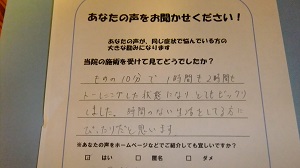 あなたの声をお聞かせください！
あなたの声が、同じ症状で悩んでいる方の
大きな励みになります
当院の施術を受けて見てどうでしたか？
ものの10分で1時間も2時間も
トレーニングした状態になりとてもビックリ
しました。時間のない生活をしてる方に
ぴったりだと思います
※あなたの声をホームページなどでご紹介しても宜しいですか？
☑ はい □ 匿名 □ ダメ